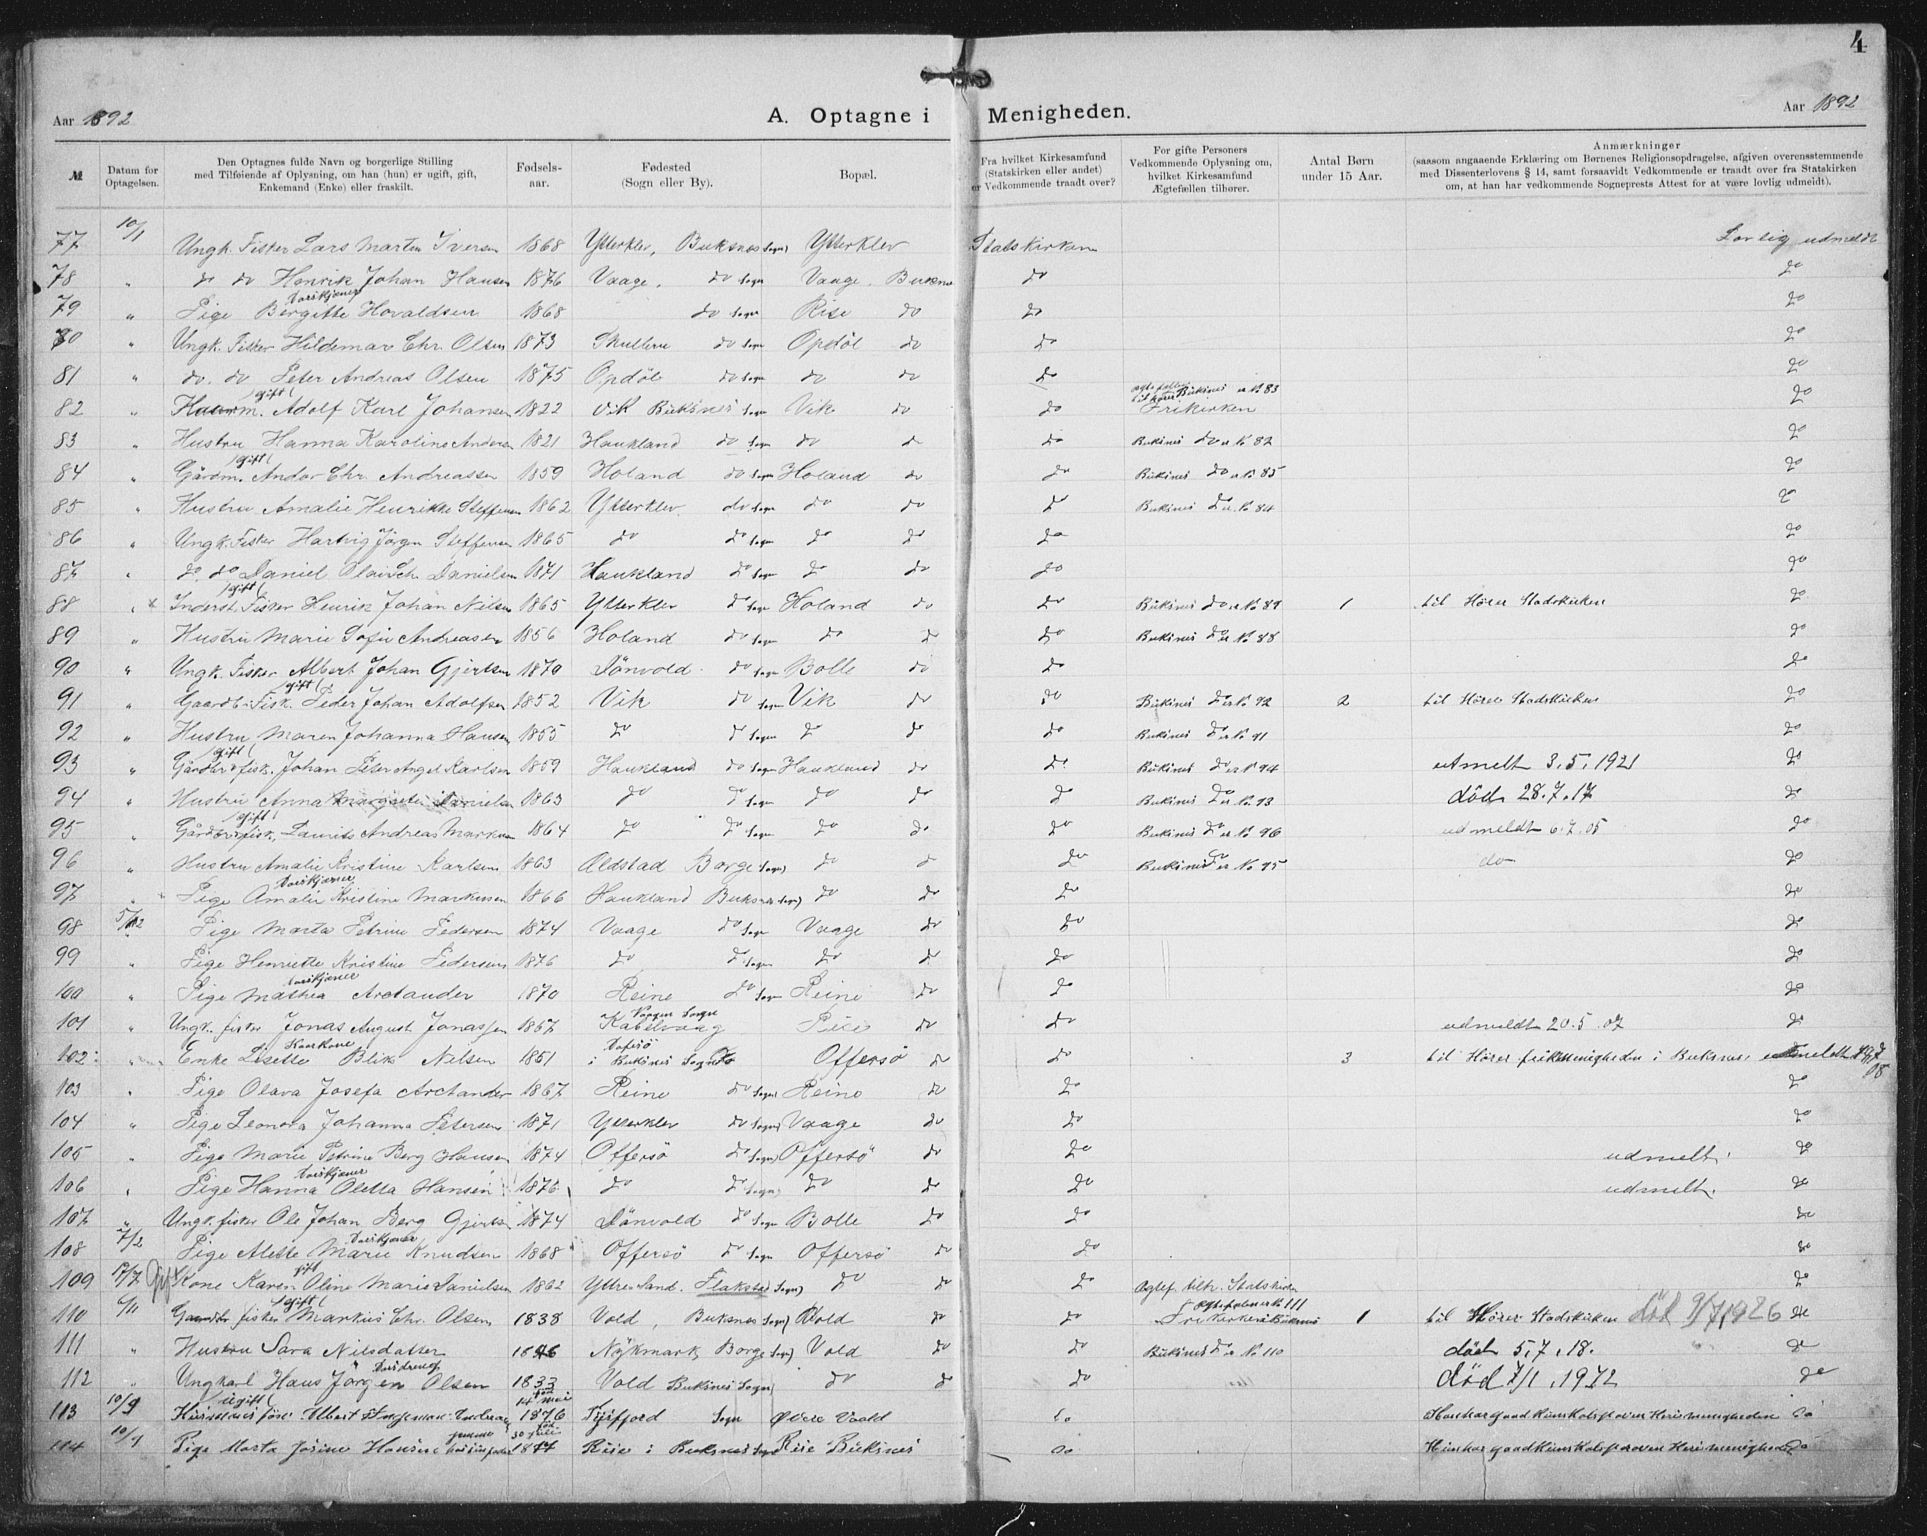 4
Aar 1892
A. Optagne i Menigheden.
Aar 1892
№ | Datum for Optagelsen. | Den Optagnes fulde Navn og borgerlige Stilling med Tilføiende af Oplysning, om han (hun) er ugift, gift, Enkemand (Enke) eller fraskilt. | Fødsels-aar. | Fødested (Sogn eller By). | Bopæl. | Fra hvilket Kirkesamfund (Statskirken eller andet) er Vedkommende traadt over? | For gifte Personers Vedkommende Oplysning om, hvilket Kirkesamfund Ægtefællen tilhører. | Antal Børn under 15 Aar. | Anmærkninger (saasom angaaende Erklæring om Børnenes Religionsopdragelse, afgiven overensstemmende med Dissenterlovens § 14, samt forsaavidt Vedkommende er traadt over fra Statskirken om, at han har vedkommende Sogneprests Attest for at være lovlig udmeldt).
77 10/1 Ungk. Fisker Lars Martin Iversen 1868 Ytterklev, Buksnes Sogn Ytterklev Statskirken Lovlig udmeldt
78 " do do Henrik Johan Hansen 1876 Vaage, do Sogn Vaage, Buksnes do do
79 " Pige Bergitte Hovaldsen 1868 do Sogn Rise do do do
80 " Ungk. Fisker Hildemar Chr. Olsen 1873 do Sogn Opdöl do do do
81 " do. do Peter Andreas Olsen 1875 Opdöl do Sogn do do do do
82 " (gift) Adolf Karl Johansen 1822 Vik Buksnes Sogn Vik do do Buksnes er No 83 Frikirken do
83 " Hustru Hanna Karoline Andersen 1821 Haukland do Sogn do do do Buksnes do er No 82 do
84 " Gårdm. (gift) Andor Chr. Andreassen 1859 Holand do Sogn Holand do do Buksnes do er No 85 do
85 " Hustru Amalie Henrikke Steffensen 1862 Ytterklev do Sogn do do do Buksnes do er No 84 do
86 " Ungk. Fisker Hartvig Jörgen Steffensen 1865 do do Sogn do do do do
87 " do. do Daniel Danielsen 1871 Haukland do Sogn do do do do
88 " x Inderst. Fisker (gift) Henrik Johan Nilsen 1865 Ytterklev do Sogn Holand do do Buksnes do er No 89 1 til Hörer Stadskirken do
89 " Hustru Marie Sofie Andreasen 1856 Holand do Sogn do do do Buksnes do er No 88 do
90 " Ungk. Fisker Albert Johan Gjertsen 1870 Dönvold do Sogn Bolle do do do
91 " Gaardb. Fisk. (gift) Peder Johan Adolfsen 1852 Vik do Sogn Vik do do Buksnes do er No 92 2 til Hörer Stadskirken do
92 " Hustru Maren Johanna Hansen 1855 do do Sogn do do do Buksnes do er No 91 do
93 " Gårdbr. fisk. (gift) Johan Peter Angel Karlsen 1859 Haukland do Sogn Haukland do do Buksnes do er No 94 utmelt 3.5.1921 do
94 " Hustru Anna Margrete Danielsen 1863 do do Sogn do do do Buksnes do er No. 93 död 28.7.17 do
95 " Gårdbr. fisk. (gift) Laurits Andreas Markusen 1864 do do Sogn do do do Buksnes do er No 96 udmeldt 6.7.05 do
96 " Hustru Amalie Kristine Karlsen 1863 Aldstad Borge Sogn do do do Buksnes do er No 95 do do
97 " Pige Amalie Kristine Markusen 1866 Haukland Buksnes Sogn do do do do
98 5/2 Pige Marta Petrine Pedersen 1874 Vaage do Sogn Vaage do do do
99 " Pige Henriette Kristine Pedersen 1876 do do Sogn do do do do
100 " Pige Mathea Arctander 1870 Reine do Sogn Reine do do do
101 " Ungk. fisker Jonas August Jonassen 1867 Kabelvaag Vaagen Sogn do do udmeldt 20.5.07 do
102 " Enke Lisette Blik Nilsen 1851 i Buksnes Sogn Offersö do do 3 til Hörer frikemenigheden i Buksnes, utmeldt
103 " Pige Olava Josefa Arctander 1867 Reine do Sogn Reine do do do
104 " Pige Leonora Johanna Petersen 1871 Ytterklev do Sogn Vaage do do do
105 " Pige Marie Petrine Berg Hansen 1874 Offersö do Sogn Offersö do do udmelt. do
106 " Pige Hanna Oletta Hansen 1876 do do Sogn do do do udmelt. do
107 " Ungk. fisker Ole Johan Berg Gjertsen 1874 Dönvold do Sogn Bolle do do do
108 7/2 Pige Alette Marie Knudsen 1868 Offersö do Sogn Offersö do do do
109 17/7 Gift Kone Karen Oline Marie Danielsen 1862 Yttre Sand. Flakstad Sogn do do do Ægtef. tilh. Statskirken do
110 6/11 Gaardbr fisker (gift) Markus Chr. Olsen 1838 Vold, Buksnes Sogn Vold do do Frikirken Buksnes 1 til Hörer Stadskirken död 9/7 1926 do
111 " Hustru Sara Nilsdatter 1846 Nykmark, Borge Sogn Vold do do Buksnes do er No 110 död 5.7.18. do
112 " Ungkarl Hans Jörgen Olsen 1833 Vold Buksnes Sogn do do do död 7/1. 1912 do
113 10/9 (ugift) Albert 14 Mai 1876 Tysfjord Sogn do do
114 10/9 Pige Marta Josine Hansen 30 1877 Rise i Buksnes Sogn Rise Buksnes do do